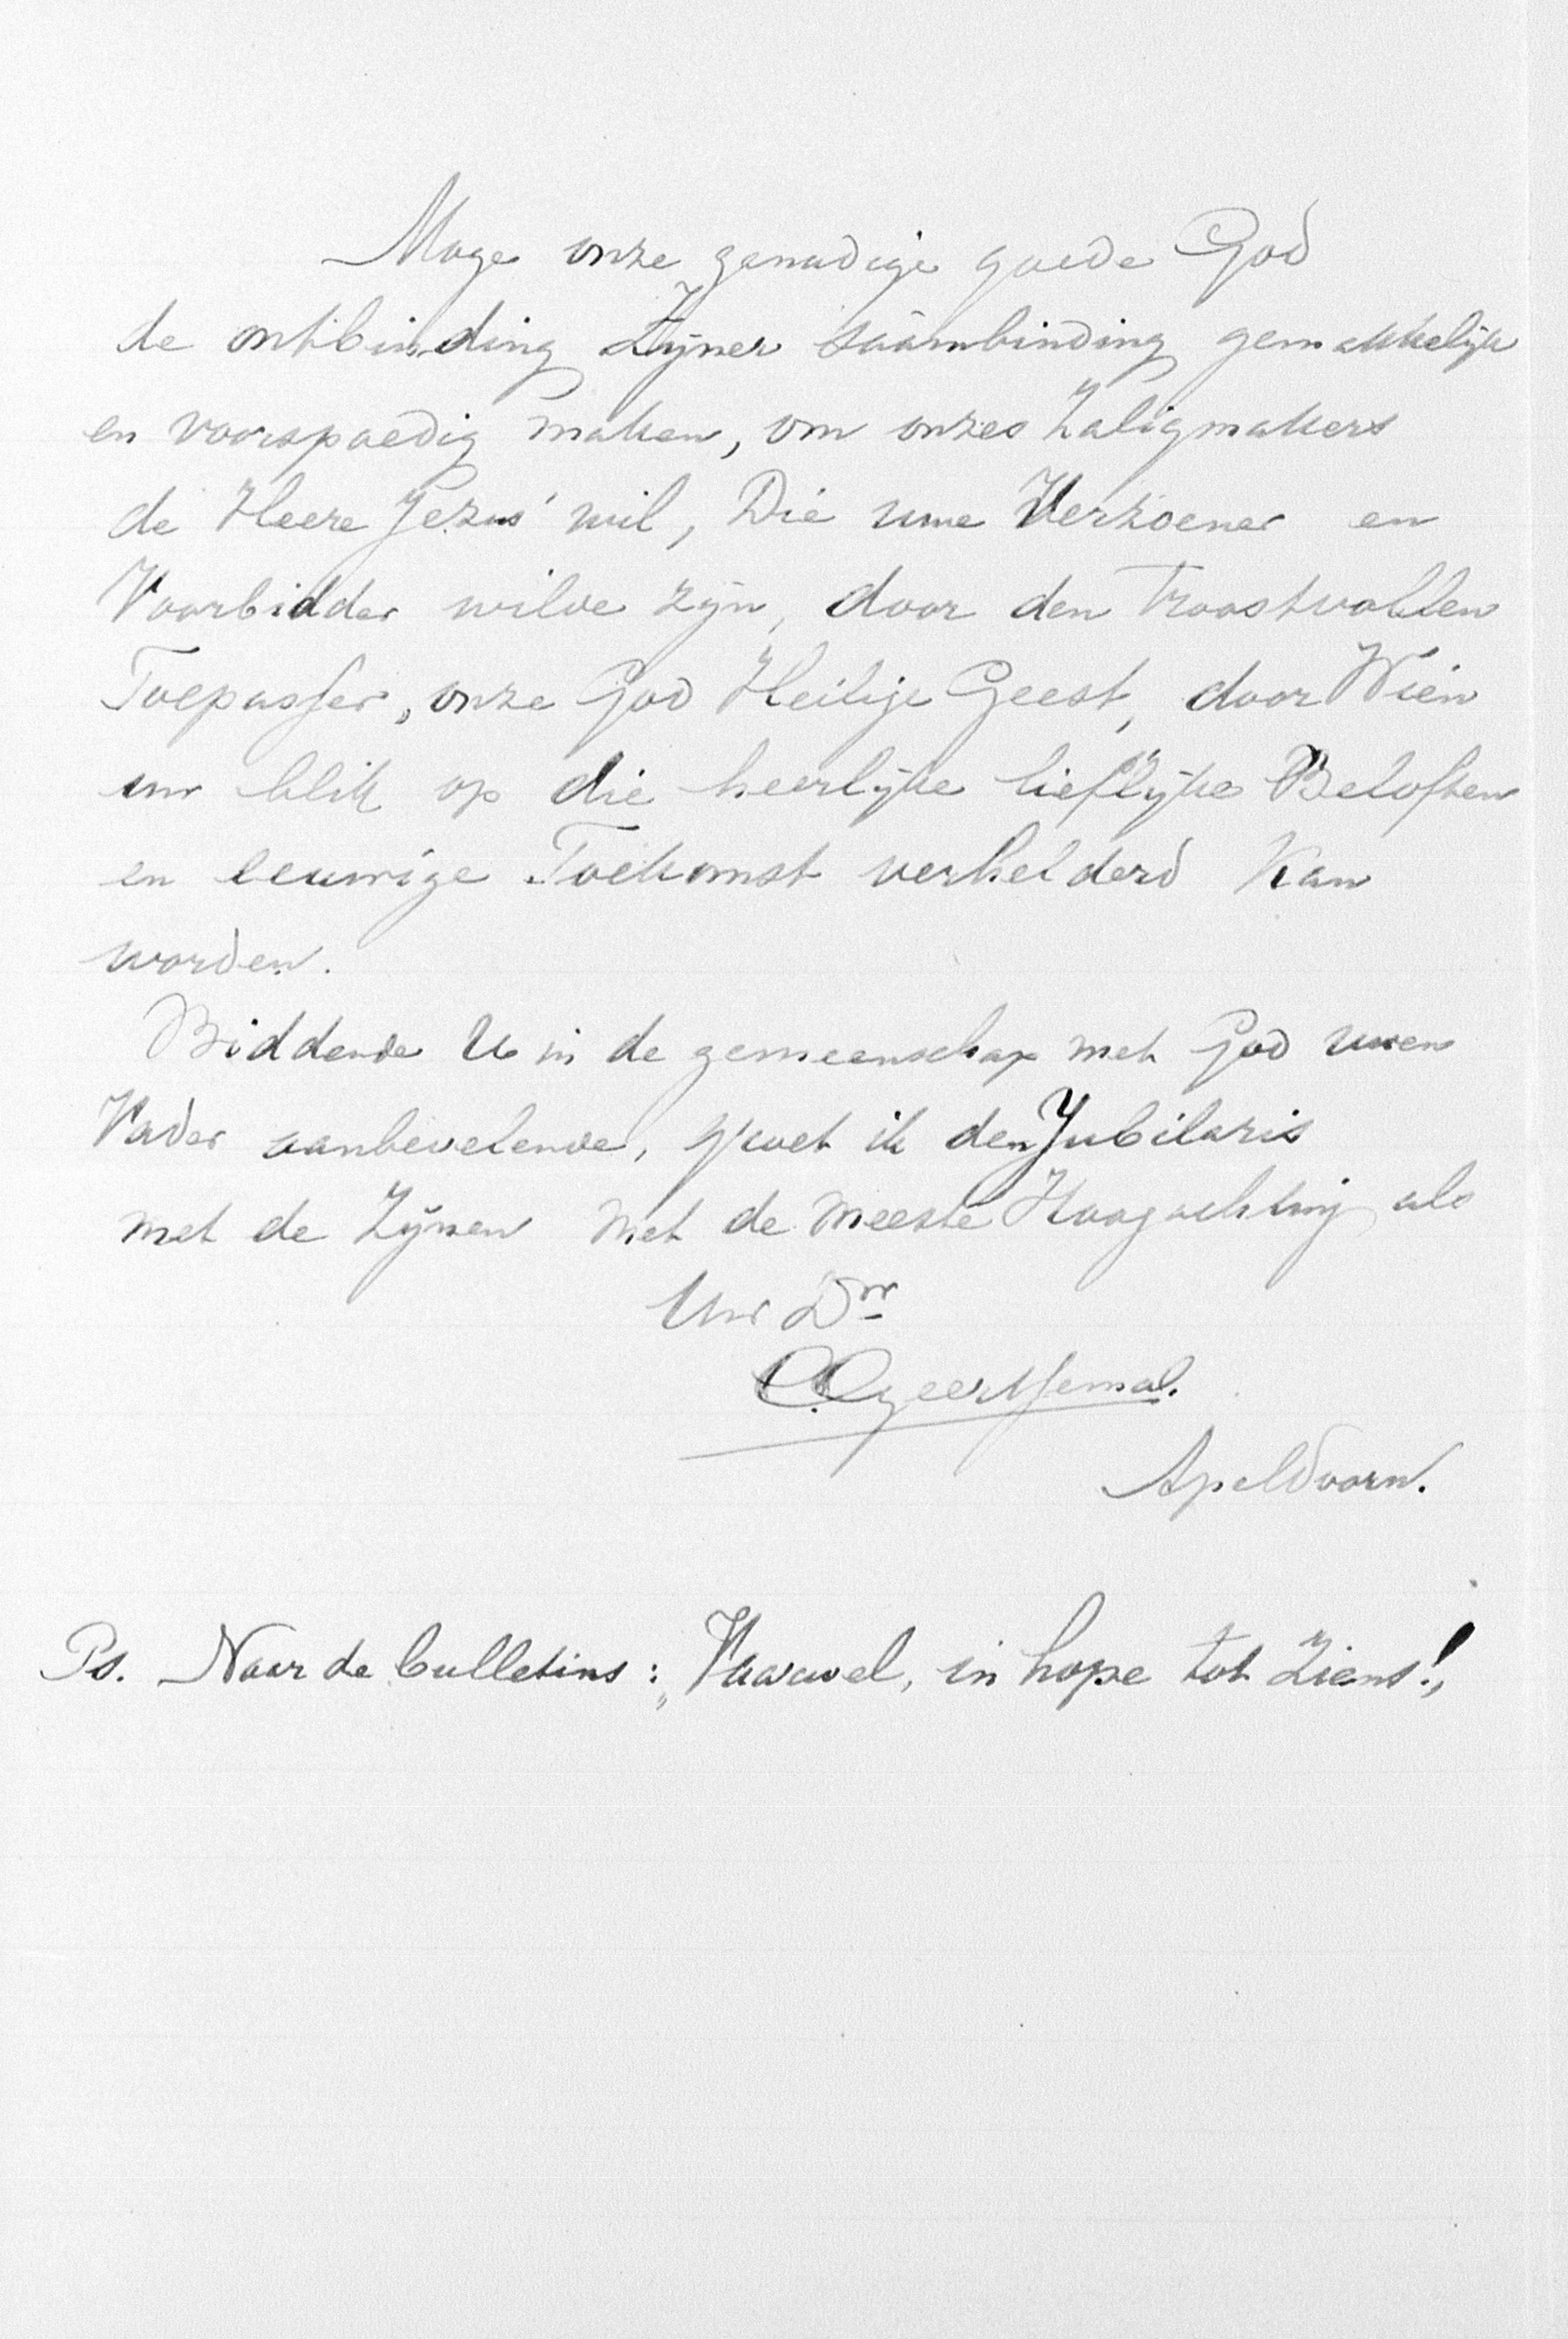 Moge onze genadige goede God
de ontbinding Zijner saâmbinding gemakkelijk
en voorspoedig maken, om onzes Zaligmakers
de Heere Jezus' wil, Die uwe Verzoener en
Voorbidder wilde zijn, door den troostvollen
Toepasser, onze God Heilige Geest, door Wien
uw blik op die heerlijke lieflijke Beloften
en eeuwige Toekomst verhelderd kan
worden.
Biddende U in de gemeenschap met God uwen
Vader aanbevelende, groet ik den Jubilaris
met de Zijnen met de meeste Hoogachting als
Uw Dnr
Apeldoorn.
Ps. Naar de bulletins: „Vaarwel, in hope tot ziens!„